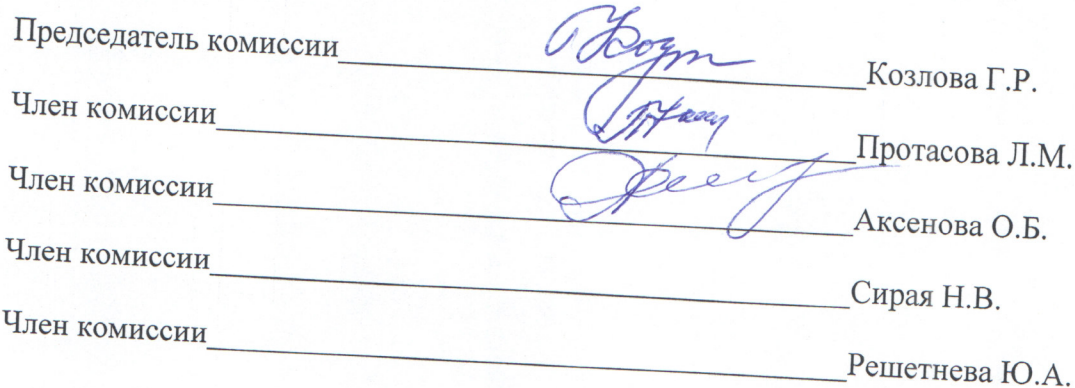 Председатель комиссии Козлова Г.Р.
Член комиссии Протасова Л.М.
Член комиссии Аксенова О.Б.
Член комиссии Сирая Н.В.
Член комиссии Решетнева Ю.А.